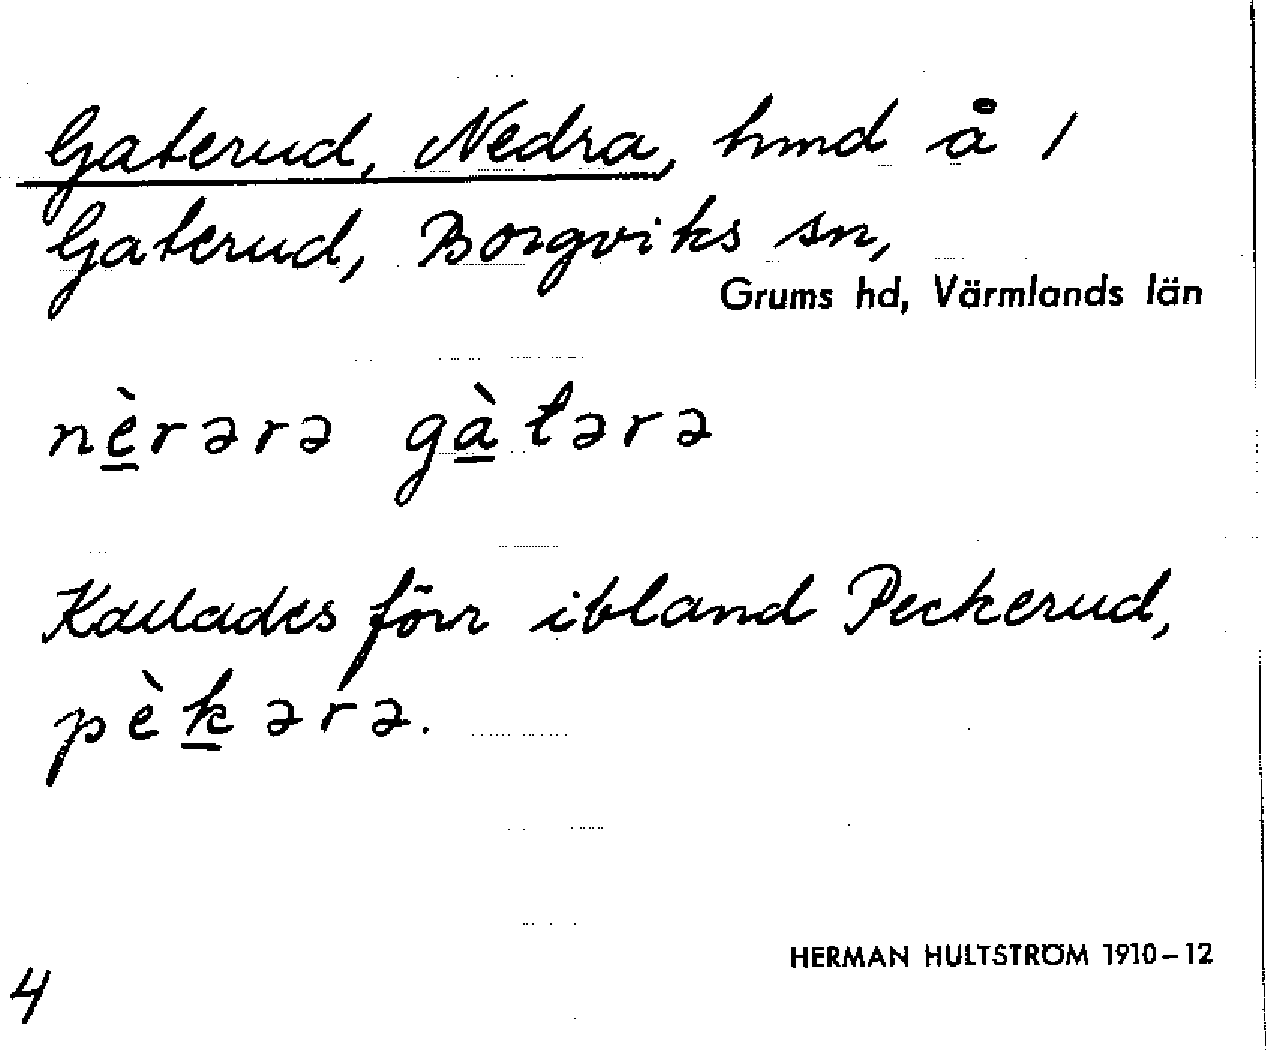 Gaterud, Nedra, hmd å 1
Gaterud, Borgviks sn,
Grums hd, Värmlands län
nè̱rərə gà̱tərə
Kallades förr ibland Peckerud,
pèḵərə.
HERMAN HULTSTRÖM 1910–12
4